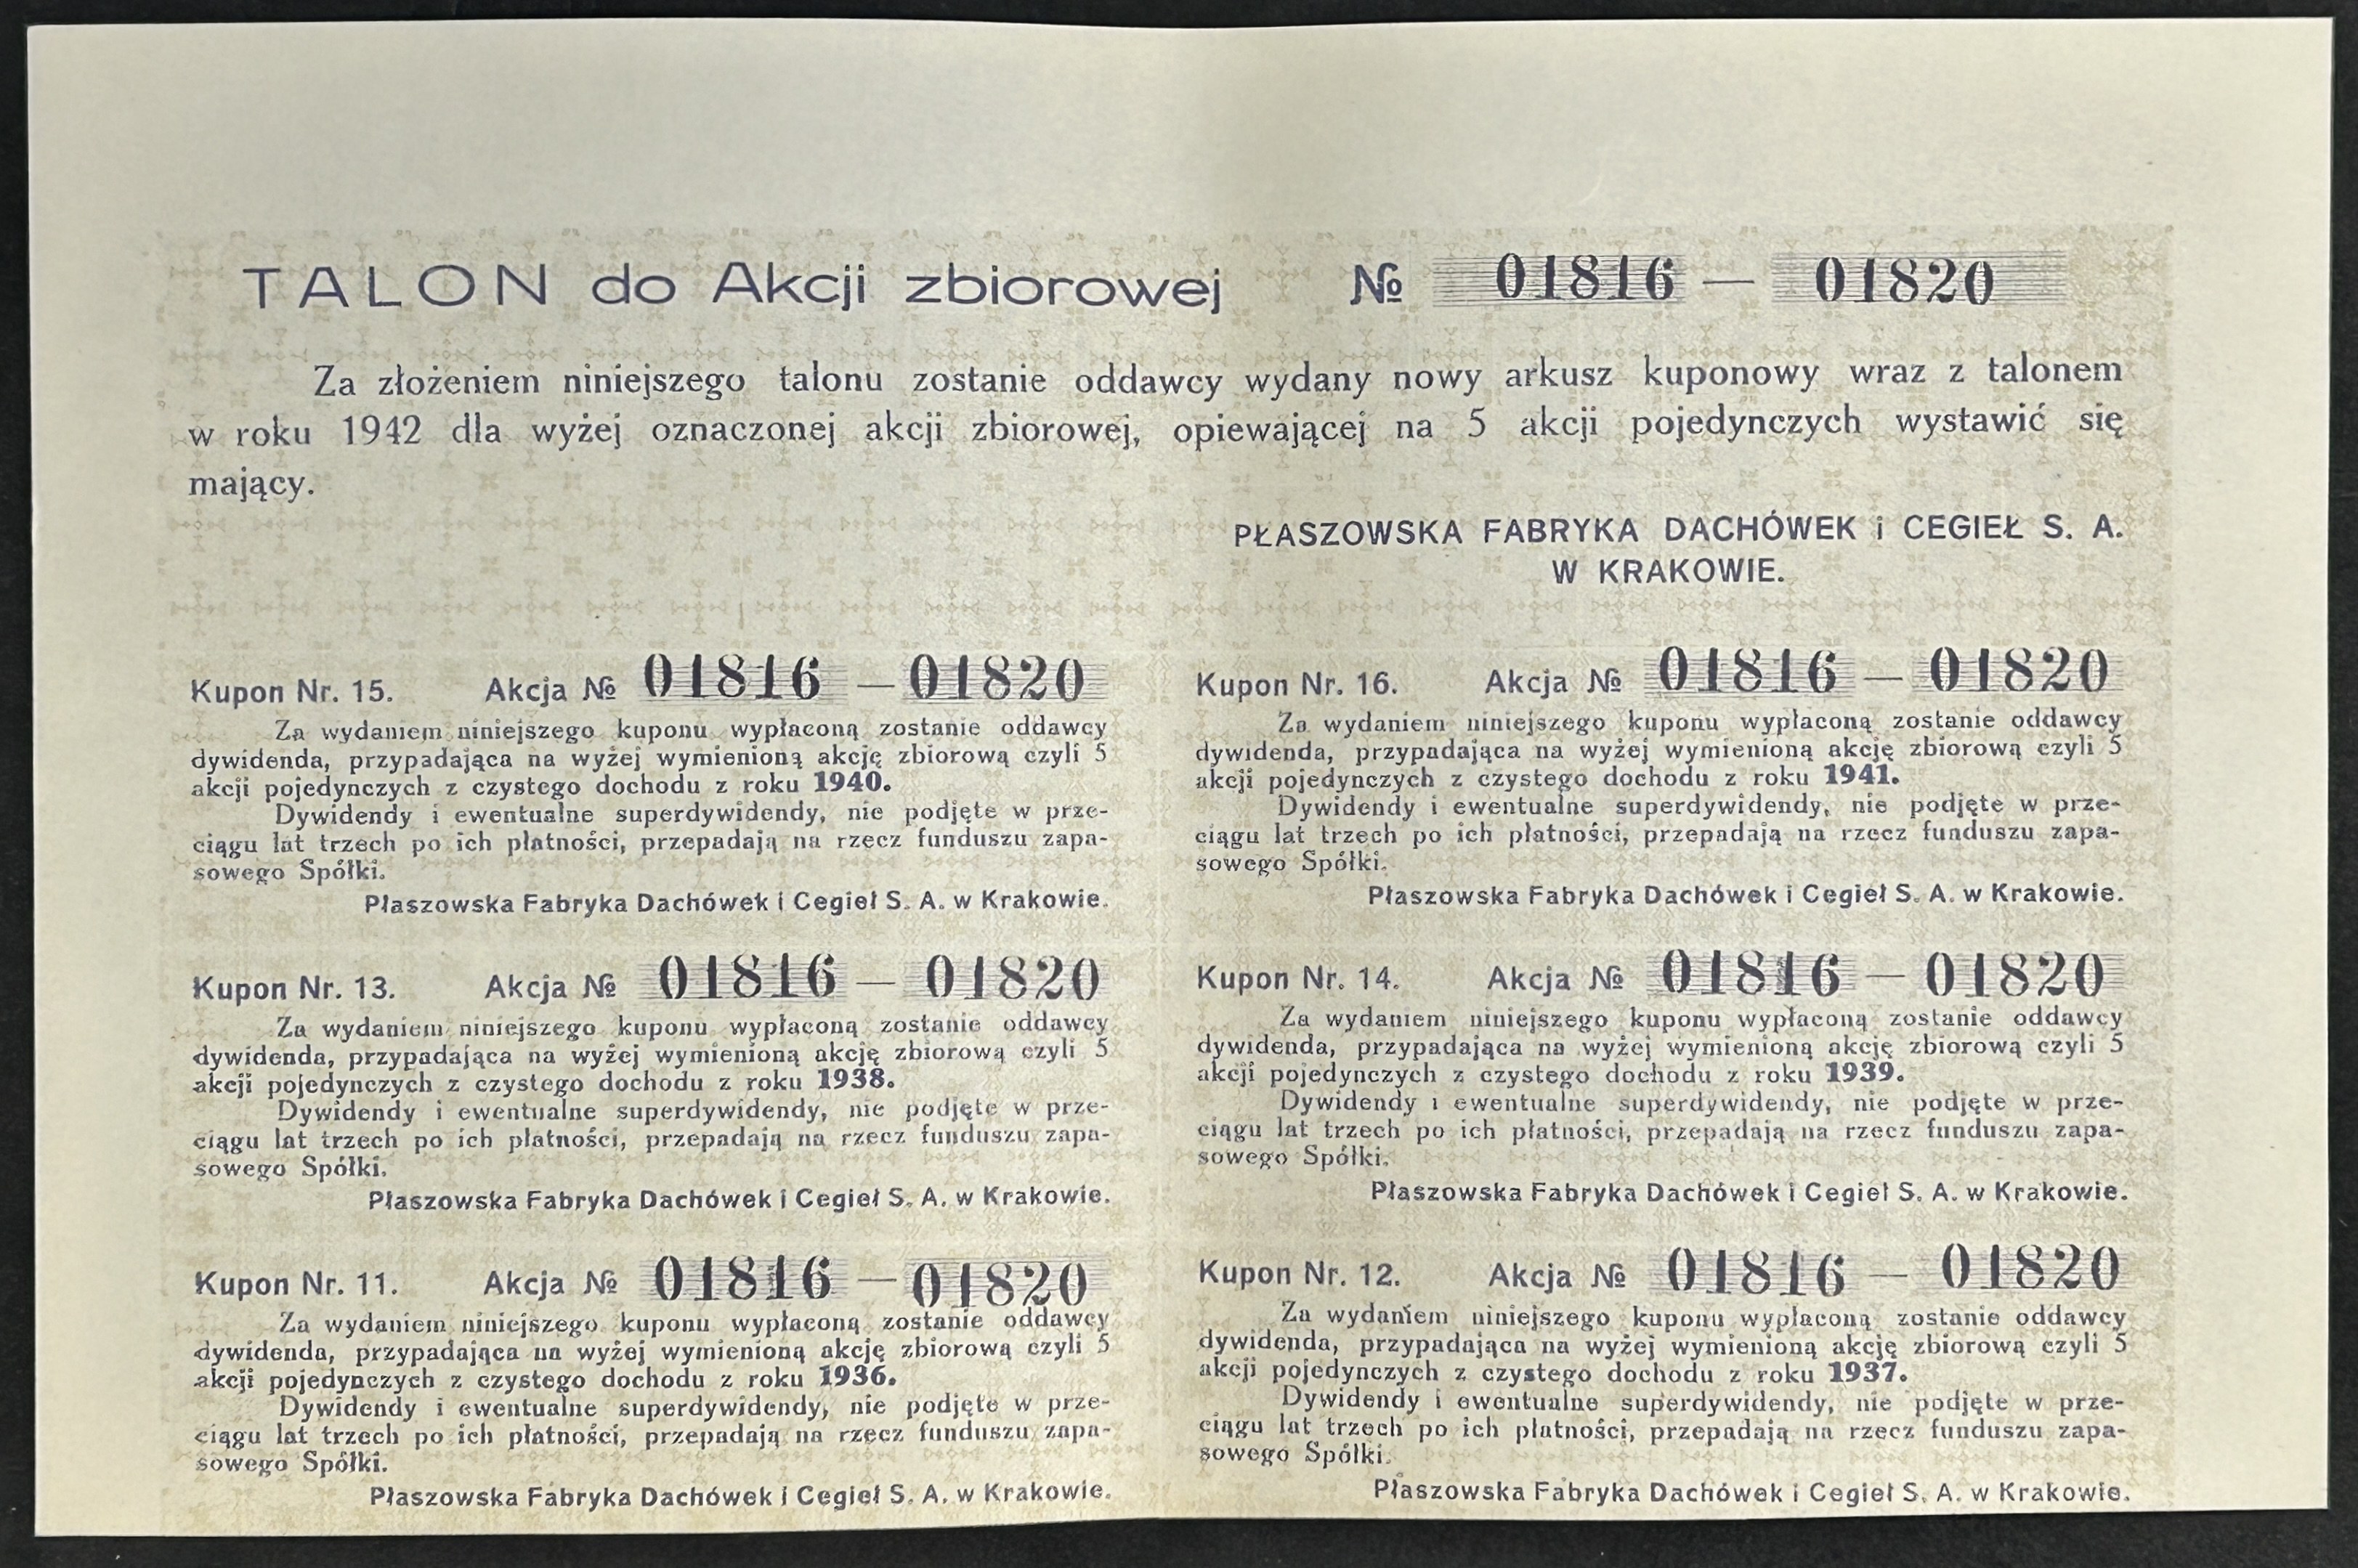 TALON do Akcji zbiorowej № 01816 — 01820
Za złożeniem niniejszego talonu zostanie oddawcy wydany nowy arkusz kuponowy wraz z talonem
w roku 1942 dla wyżej oznaczonej akcji zbiorowej, opiewającej na 5 akcji pojedynczych wystawić się
mający.
PŁASZOWSKA FABRYKA DACHÓWEK i CEGIEŁ S. A.
W KRAKOWIE.
Kupon Nr. 15. Akcja № 01816 — 01820
Za wydaniem niniejszego kuponu wypłaconą zostanie oddawcy
dywidenda, przypadająca na wyżej wymienioną akcję zbiorową czyli 5
akcji pojedynczych z czystego dochodu z roku 1940.
Dywidendy i ewentualne superdywidendy, nie podjęte w prze-
ciągu lat trzech po ich płatności, przepadają na rzecz funduszu zapa-
sowego Spółki.
Płaszowska Fabryka Dachówek i Cegieł S. A. w Krakowie.
Kupon Nr. 16. Akcja № 01816 — 01820
Za wydaniem niniejszego kuponu wypłaconą zostanie oddawcy
dywidenda, przypadająca na wyżej wymienioną akcję zbiorową czyli 5
akcji pojedynczych z czystego dochodu z roku 1941.
Dywidendy i ewentualne superdywidendy, nie podjęte w prze-
ciągu lat trzech po ich płatności, przepadają na rzecz funduszu zapa-
sowego Spółki.
Płaszowska Fabryka Dachówek i Cegieł S. A. w Krakowie.
Kupon Nr. 13. Akcja № 01816 — 01820
Za wydaniem niniejszego kuponu wypłaconą zostanie oddawcy
dywidenda, przypadająca na wyżej wymienioną akcję zbiorową czyli 5
akcji pojedynczych z czystego dochodu z roku 1938.
Dywidendy i ewentualne superdywidendy, nie podjęte w prze-
ciągu lat trzech po ich płatności, przepadają na rzecz funduszu zapa-
sowego Spółki.
Płaszowska Fabryka Dachówek i Cegieł S. A. w Krakowie.
Kupon Nr. 14. Akcja № 01816 — 01820
Za wydaniem niniejszego kuponu wypłaconą zostanie oddawcy
dywidenda, przypadająca na wyżej wymienioną akcję zbiorową czyli 5
akcji pojedynczych z czystego dochodu z roku 1939.
Dywidendy i ewentualne superdywidendy, nie podjęte w prze-
ciągu lat trzech po ich płatności, przepadają na rzecz funduszu zapa-
sowego Spółki.
Płaszowska Fabryka Dachówek i Cegieł S. A. w Krakowie.
Kupon Nr. 11. Akcja № 01816 — 01820
Za wydaniem niniejszego kuponu wypłaconą zostanie oddawcy
dywidenda, przypadająca na wyżej wymienioną akcję zbiorową czyli 5
akcji pojedynczych z czystego dochodu z roku 1936.
Dywidendy i ewentualne superdywidendy, nie podjęte w prze-
ciągu lat trzech po ich płatności, przepadają na rzecz funduszu zapa-
sowego Spółki.
Płaszowska Fabryka Dachówek i Cegieł S. A. w Krakowie.
Kupon Nr. 12. Akcja № 01816 — 01820
Za wydaniem niniejszego kuponu wypłaconą zostanie oddawcy
dywidenda, przypadająca na wyżej wymienioną akcję zbiorową czyli 5
akcji pojedynczych z czystego dochodu z roku 1937.
Dywidendy i ewentualne superdywidendy, nie podjęte w prze-
ciągu lat trzech po ich płatności, przepadają na rzecz funduszu zapa-
sowego Spółki.
Płaszowska Fabryka Dachówek i Cegieł S. A. w Krakowie.